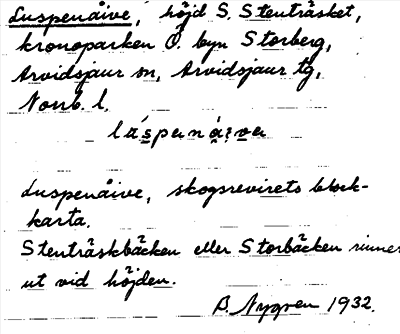 Luspenåive, höjd S. Stenträsket,
kronoparken Ö. byn Storberg,
Arvidsjaur sn, Arvidsjaur tg,
Norrb. l.
Luspenåive, skogsrevirets block-
karta.
Stenträskbäcken eller Storbäcken rinner
ut vid höjden.
B. Nygren 1932.